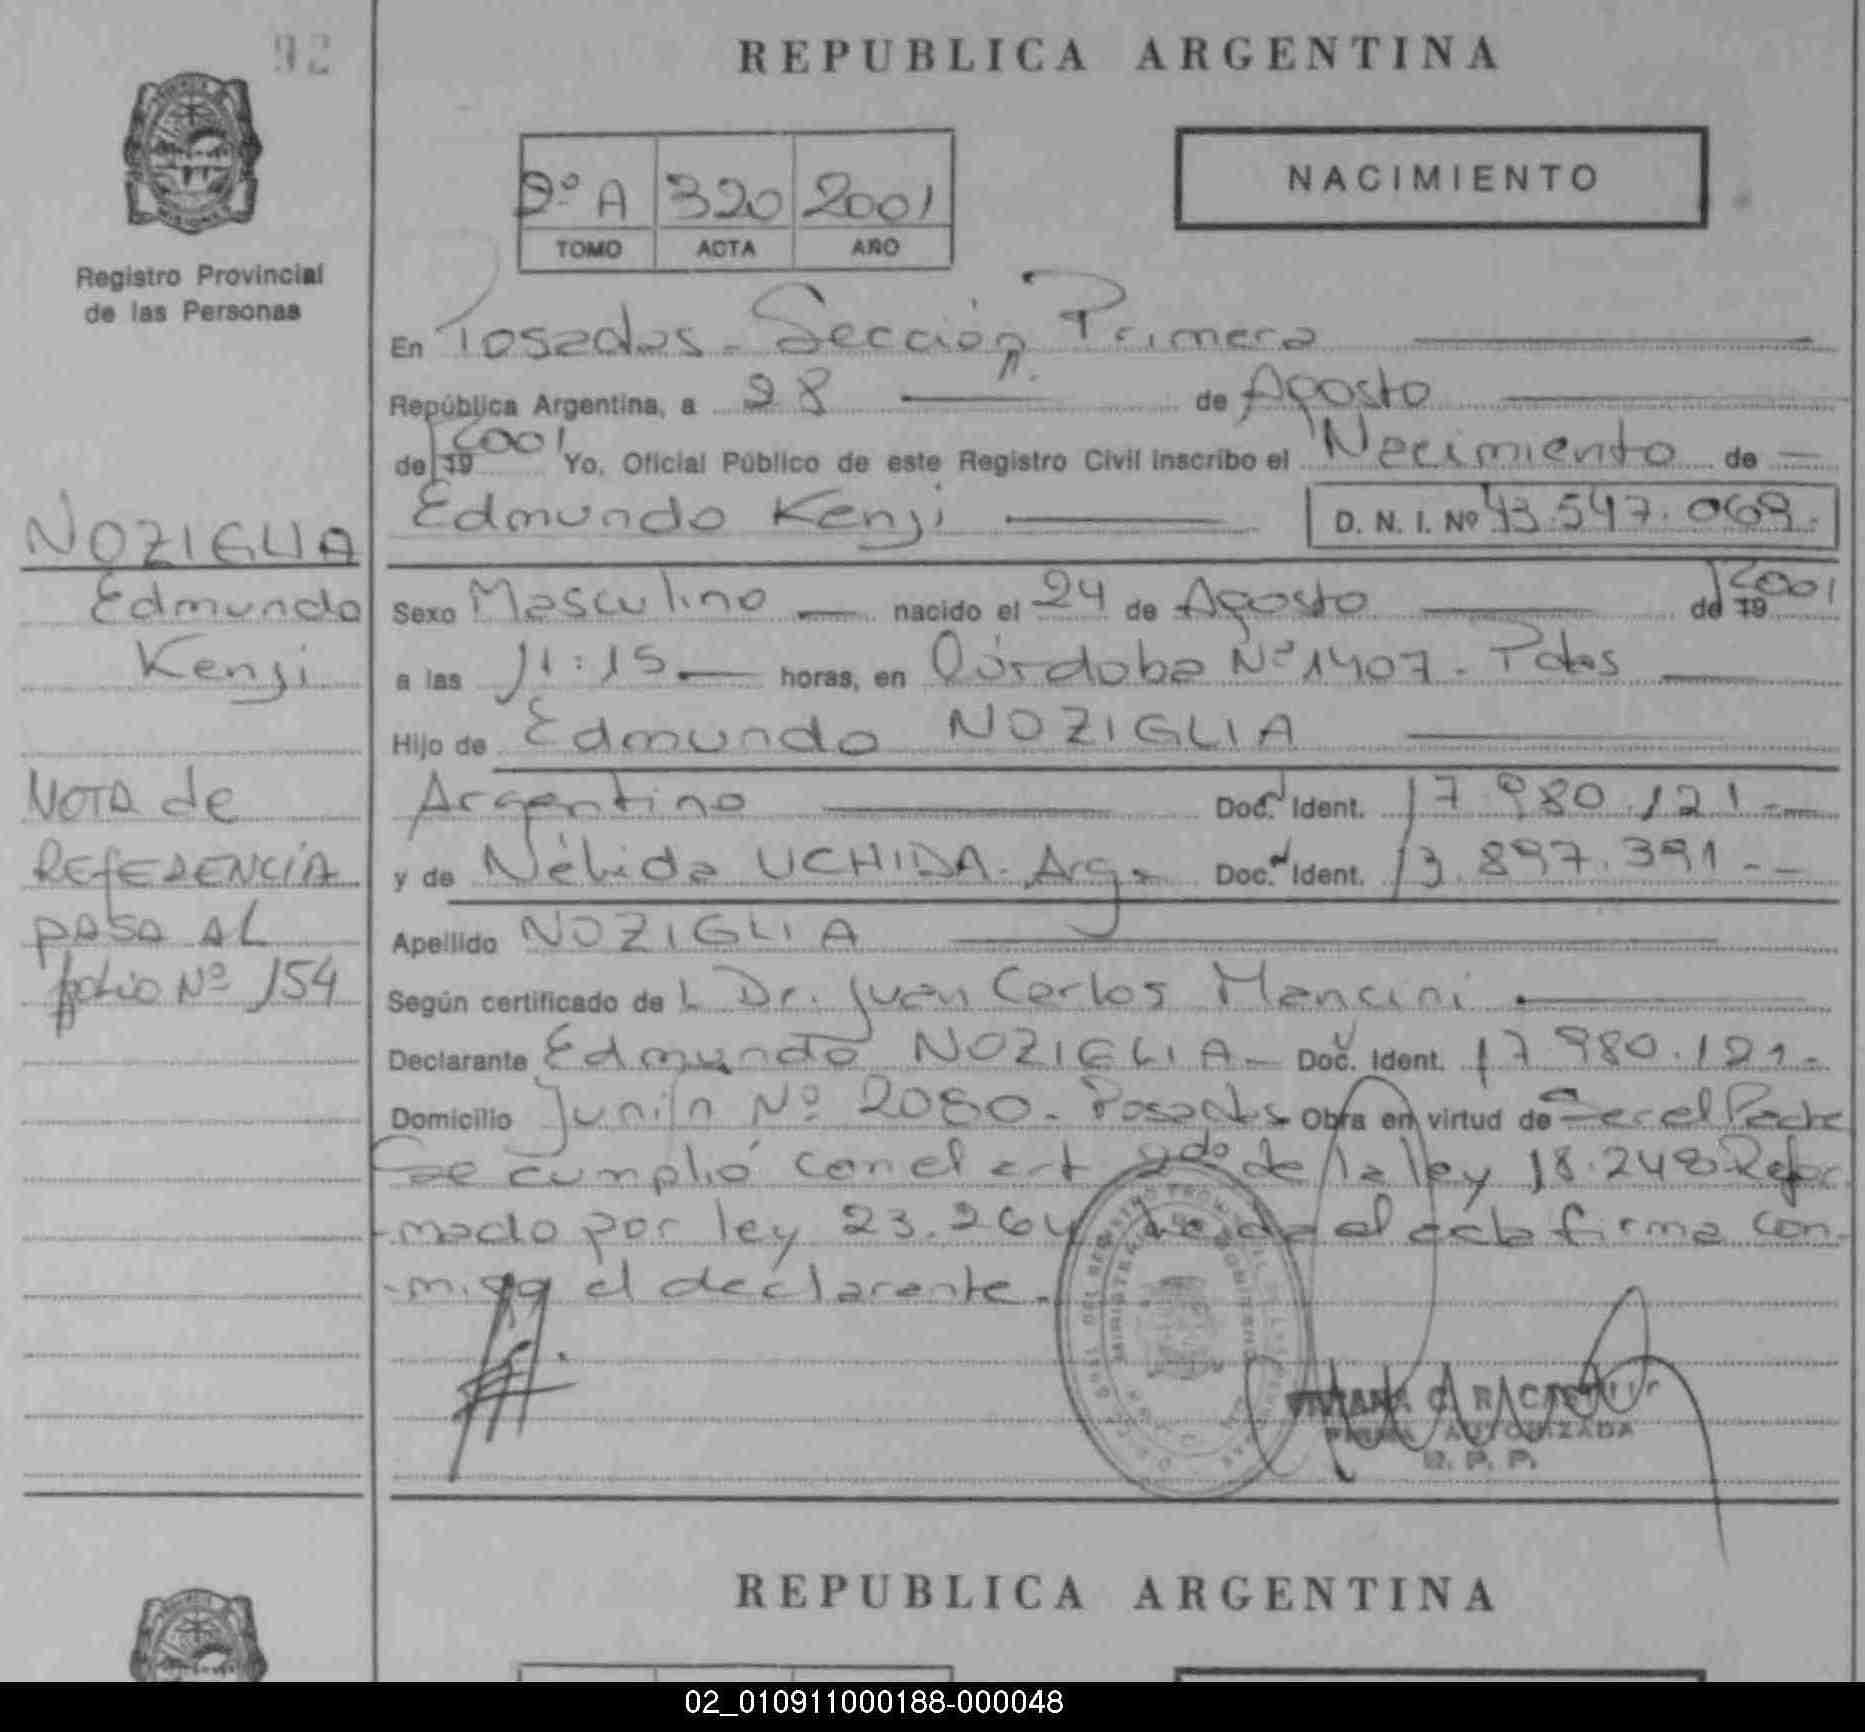 92
REPUBLICA ARGENTINA
2º A 320 2001
TOMO ACTA AÑO
NACIMIENTO
Registro Provincial
de las Personas
En Posadas - Sección Primera
República Argentina, a 28 de Agosto
de 19 2001 Yo, Oficial Público de este Registro Civil inscribo el Nacimiento de
Edmundo Kenji D. N. I. Nº 43.547.069.
NOZIGLIA
Edmundo
Kenji
Sexo Masculino nacido el 24 de Agosto de 19 2001
a las 11:15 horas, en Córdoba Nº 1407 - Pdas
Hijo de Edmundo NOZIGLIA
Argentino Doc. Ident. 17.980.121.-
y de Nélida UCHIDA - Arg. Doc. Ident. 13.897.391.-
Apellido NOZIGLIA
NOTA de
REFERENCIA
PASA AL
folio Nº 154
Según certificado de L Dr. Juan Carlos Mancini
Declarante Edmundo NOZIGLIA - Doc. Ident. 17.980.121.-
Domicilio Junín Nº 2080 - Posadas Obra en virtud de Ser el Padre
Se cumplió con el art 2do de la ley 18.248 Refor
-mado por ley 23.264 el acta firma con-
-migo el declarante.
FIRMA AUTORIZADA
R. P. P.
REPUBLICA ARGENTINA
02_010911000188-000048